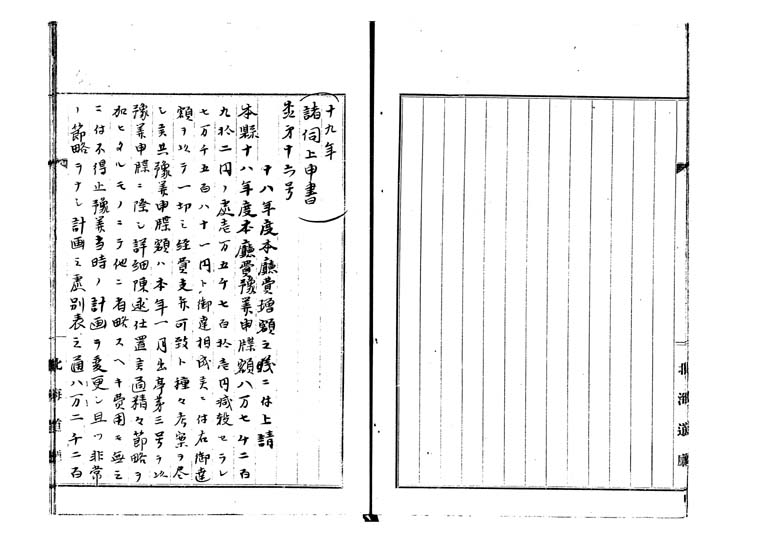 十九年
諸伺上申書
出第十六号
十八年度本廳費増額之儀ニ付上請
本縣十八年度本廳費豫算申牒額八万七千二百
九拾二円ノ處壱万五千七百拾壱円減殺セラレ
七万千五百八十一円ト御達相成候ニ付右御達
額ヲ以テ一切之経費支弁可致ト種々考案ヲ尽
シ候共豫算申牒額ハ本年一月出亭第三号ヲ以
豫算申牒ニ際シ詳細陳述仕置候通精々節略ヲ
加ヒタルモノニテ他ニ省略スヘキ費用モ無之
ニ付不得止豫算当時ノ計画ヲ変更シ且ツ非常
ノ節略ヲナシ計画之處別表之通八万二千二百
北海道廳
北海道廳